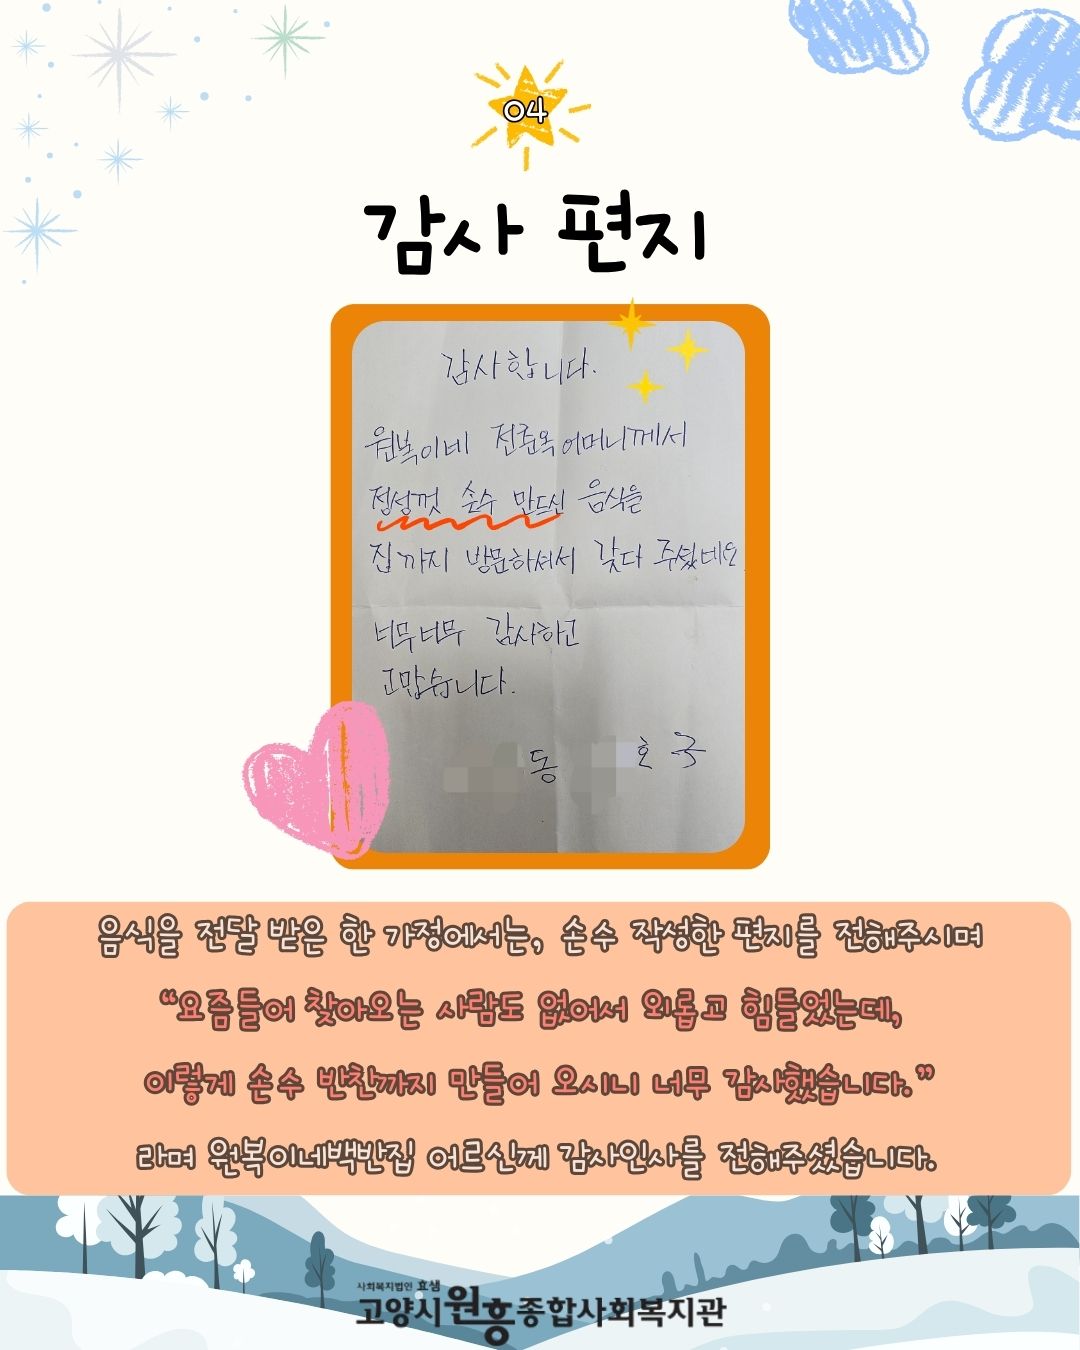 04
감사 편지
감사합니다.
원복이네 전춘옥 어머니께서
정성껏 손수 만드신 음식을
집까지 방문하셔서 갖다 주셨네요
너무너무 감사하고
고맙습니다.
동 호
음식을 전달 받은 한 가정에서는, 손수 작성한 편지를 전해주시며
“요즘들어 찾아오는 사람도 없어서 외롭고 힘들었는데,
이렇게 손수 반찬까지 만들어 오시니 너무 감사했습니다.”
라며 원복이네백반집 어르신께 감사인사를 전해주셨습니다.
사회복지법인 효샘
고양시원흥종합사회복지관